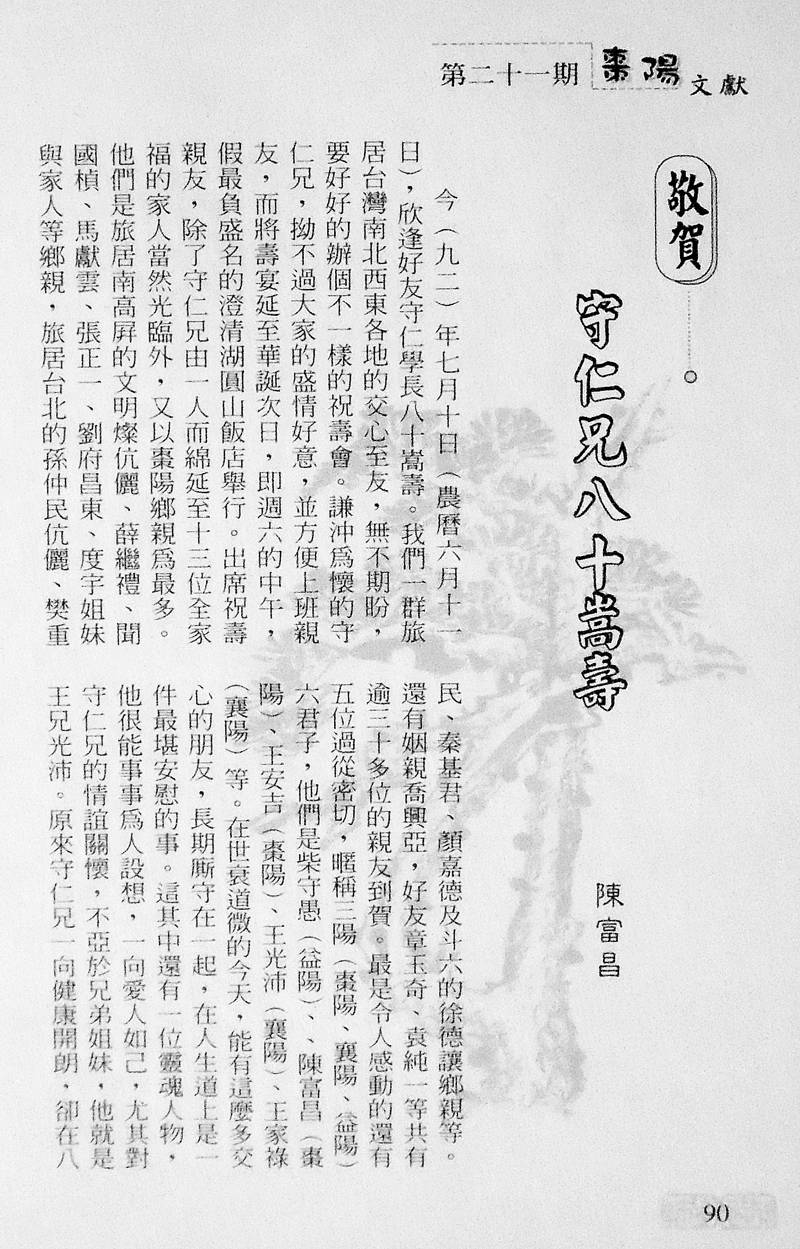 第二十一期 棗陽文獻
敬賀
守仁兄八十嵩壽
陳富昌
今（九二）年七月十日（農曆六月十一
日），欣逢好友守仁學長八十嵩壽。我們一群旅
居台灣南北西東各地的交心至友，無不期盼，
要好好的辦個不一樣的祝壽會。謙沖為懷的守
仁兄，拗不過大家的盛情好意，並方便上班親
友，而將壽宴延至華誕次日，即週六的中午，
假最負盛名的澄清湖圓山飯店舉行。出席祝壽
親友，除了守仁兄由一人而綿延至十三位全家
福的家人當然光臨外，又以棗陽鄉親為最多。
他們是旅居南高屏的文明燦伉儷、薛繼禮、聞
國楨、馬獻雲、張正一、劉府昌東、度宇姐妹
與家人等鄉親，旅居台北的孫仲民伉儷、樊重
民、秦基君、顏嘉德及斗六的徐德讓鄉親等。
還有姻親喬興亞，好友章玉奇、袁純一等共有
逾三十多位的親友到賀。最是令人感動的還有
五位過從密切，暱稱三陽（棗陽、襄陽、益陽）
六君子，他們是柴守愚（益陽）、、陳富昌（棗
陽）、王安吉（棗陽）、王光沛（襄陽）、王家祿
（襄陽）等。在世衰道微的今天，能有這麼多交
心的朋友，長期廝守在一起，在人生道上是一
件最堪安慰的事。這其中還有一位靈魂人物，
他很能事事為人設想，一向愛人如己，尤其對
守仁兄的情誼關懷，不亞於兄弟姐妹，他就是
王兄光沛。原來守仁兄一向健康開朗，卻在八
90